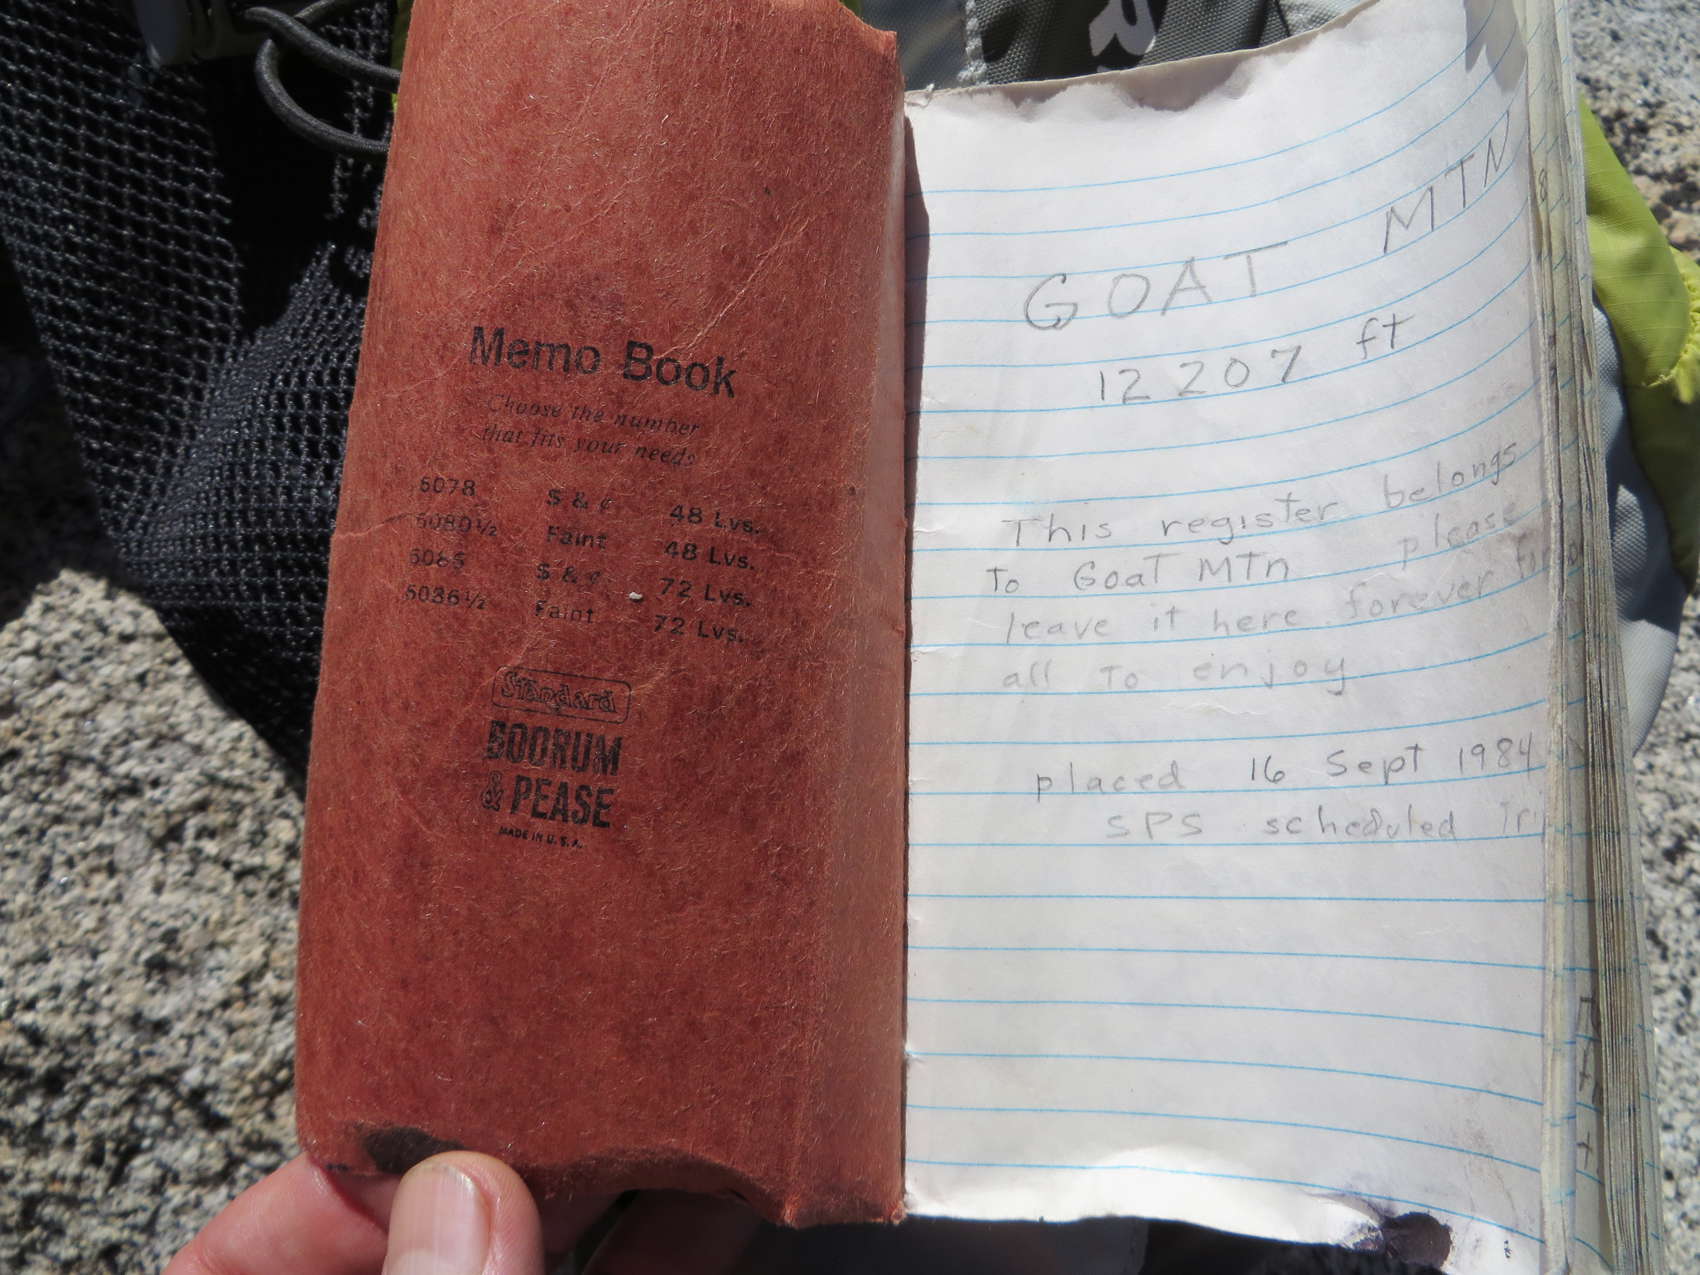 Memo Book
Choose the number
that fits your needs
6078 $ & ¢ 48 Lvs.
6080½ Faint 48 Lvs.
6085 $ & ¢ 72 Lvs.
6086½ Faint 72 Lvs.
Standard
BOORUM
& PEASE
MADE IN U.S.A.
GOAT MTN
12207 ft
This register belongs
To Goat MTn please
leave it here forever for
all To enjoy
placed 16 Sept 1984
SPS scheduled